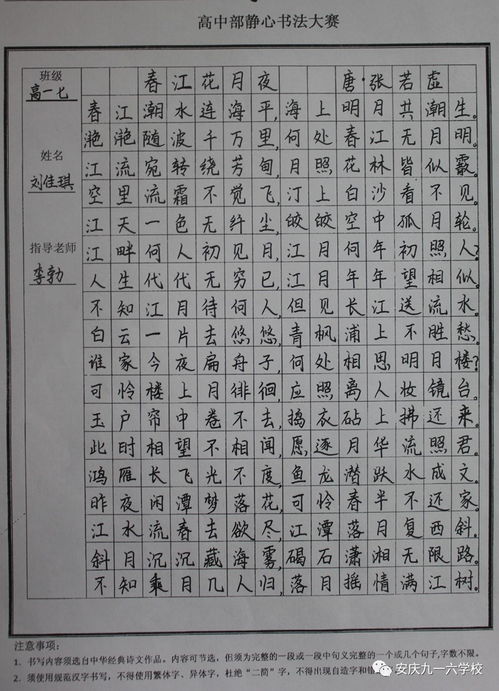 高中部静心书法大赛
班级
高一七
姓名
刘佳琪
指导老师
李勃
春江花月夜 唐·张若虚
春江潮水连海平,海上明月共潮生。
滟滟随波千万里,何处春江无月明。
江流宛转绕芳甸,月照花林皆似霰。
空里流霜不觉飞,汀上白沙看不见。
江天一色无纤尘,皎皎空中孤月轮。
江畔何人初见月,江月何年初照人?
人生代代无穷已,江月年年望相似。
不知江月待何人,但见长江送流水。
白云一片去悠悠,青枫浦上不胜愁。
谁家今夜扁舟子,何处相思明月楼?
可怜楼上月徘徊,应照离人妆镜台。
玉户帘中卷不去,捣衣砧上拂还来。
此时相望不相闻,愿逐月华流照君。
鸿雁长飞光不度,鱼龙潜跃水成文。
昨夜闲潭梦落花,可怜春半不还家。
江水流春去欲尽,江潭落月复西斜。
斜月沉沉藏海雾,碣石潇湘无限路。
不知乘月几人归,落月摇情满江树。
注意事项:
1. 书写内容须选自中华经典诗文作品。内容可节选,但须为完整的一段或一段中句义完整的一个或几个句子,字数不限。
2. 须使用规范汉字书写,不得使用繁体字、异体字,杜绝“二简”字,不得出现自造字和
安庆九一六学校